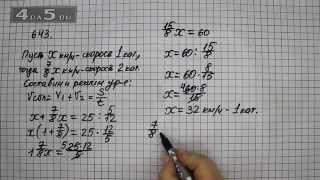 4DA5.RU
643.
Пусть x км/ч - скорость 1 кат.,
тогда 7/8 x км/ч - скорость 2 кат.
Составим и решим ур-е:
Vсбл. = V1 + V2 = S/t
x + 7/8 x = 25 : 5/12
x(1 + 7/8) = 25 · 12/5
1 7/8 x = 25·12/5
15/8 x = 60
x = 60 : 15/8
x = 60 · 8/15
x = 60·8/15
x = 32 км/ч - 1 кат.
7/8